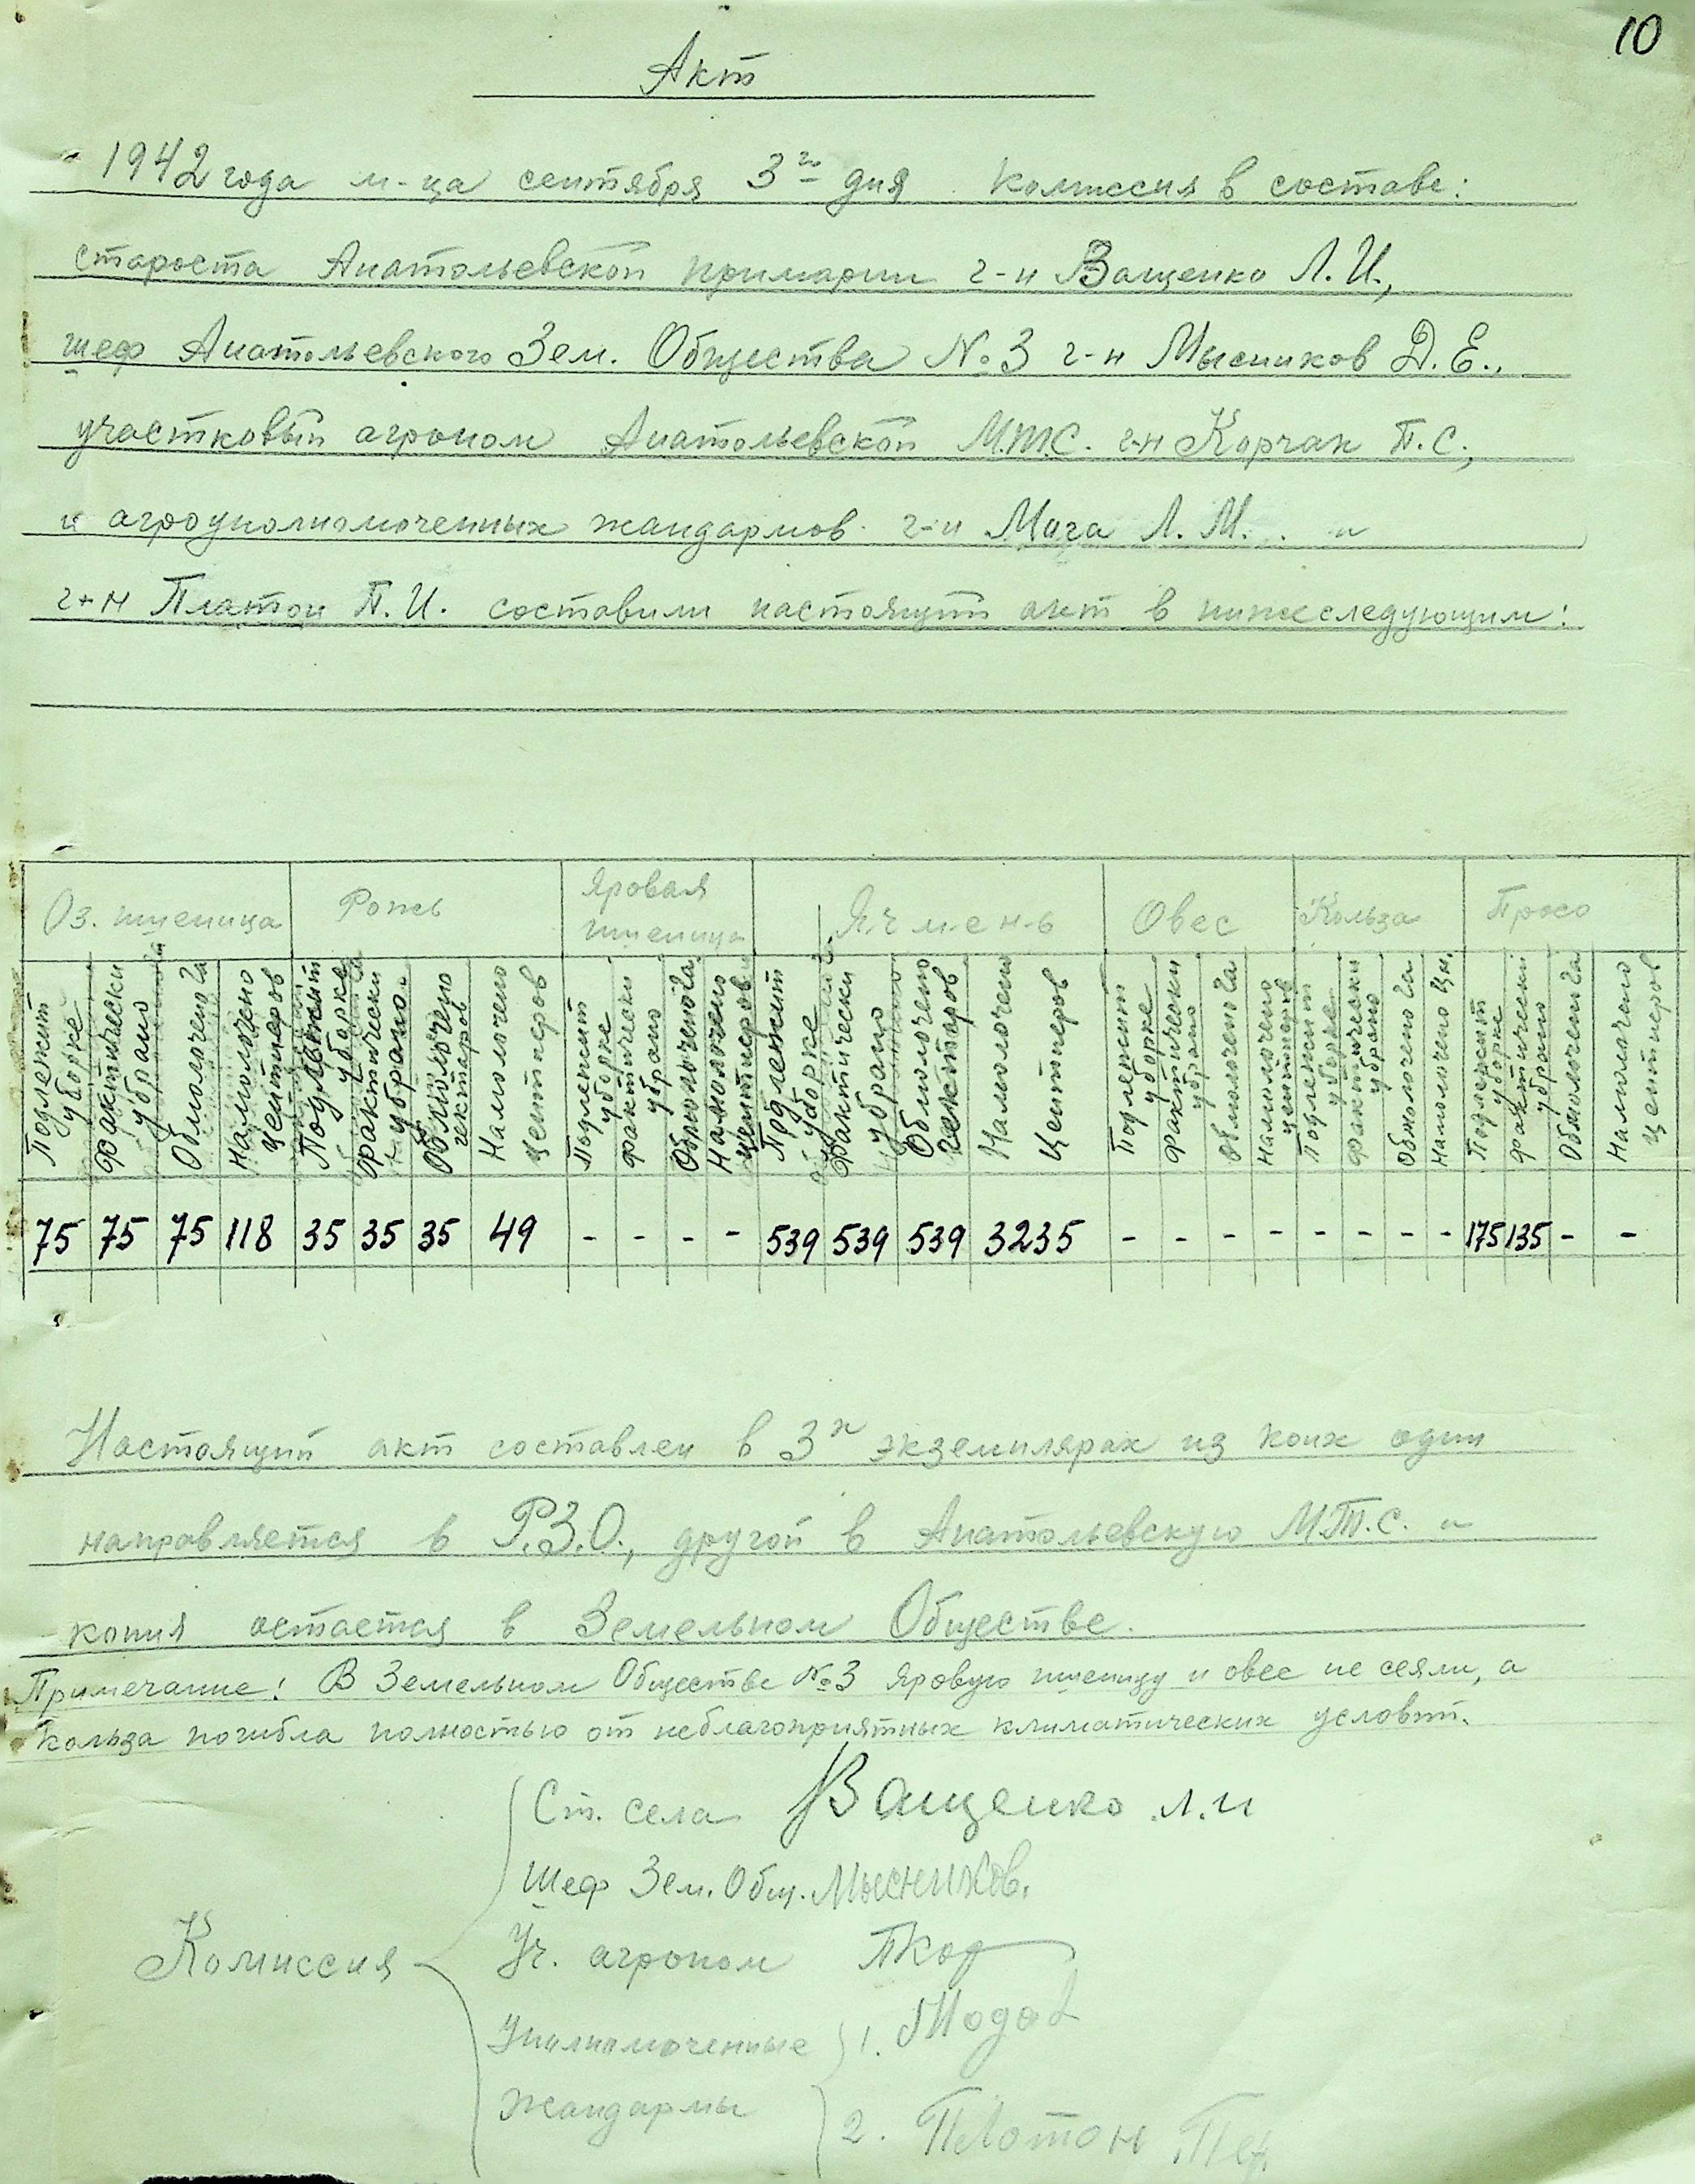 10
Акт
1942 года м-ца сентября 3го дня комиссия в составе:
староста Анатольевской примарии г-н Ващенко Л. И.,
шеф Анатольевского Зем. Общества № 3 г-н Мысников Д. Е.,
участковый агроном Анатольевской М.Т.С. г-н Корчак П. С.,
и агроуполномоченных жандармов г-н Мага Л. М. и
г-н Платон П. И. составили настоящий акт в нижеследующим:
Оз. пшеница Рожь Яровая пшеница Ячмень Овес Кользa Просо
Подлежит уборке Фактически убрано Обмолочено га Намолочено центнеров Подлежит уборке Фактически убрано Обмолочено гектаров Намолочено центнеров Подлежит уборке Фактически убрано Обмолочено га Намолочено центнеров Подлежит уборке Фактически убрано Обмолочено гектаров Намолочено Центнеров Подлежит уборке Фактически убрано Обмолочено га Намолочено центнеров Подлежит уборке Фактически убрано Обмолочено га Намолочено цн. Подлежит уборке Фактически убрано Обмолочен га Намолочено центнеров
75 75 75 118 35 35 35 49 - - - - 539 539 539 3235 - - - - - - - - 175 135 - -
Настоящий акт составлен в 3х экземплярах из коих один
направляется в Р.З.О., другой в Анатольевскую М.Т.С. и
копия остается в Земельном Обществе.
Примечание: В Земельном Обществе № 3 яровую пшеницу и овес не сеяли, а
кольза погибла полностью от неблагоприятных климатических условий.
Ст. села Ващенко Л. И
Шеф Зем. Общ. Мысников.
Комиссия Уч. агроном ПКор
Уполномоченные 1.
Жандармы 2. Платон